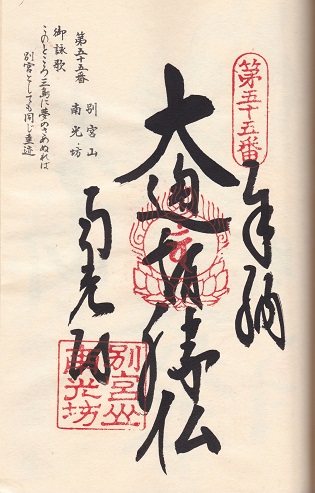 第五十五番
奉納
大通智勝仏
南光坊
別宮山
南光坊
第五十五番　別宮山
南光坊
御詠歌
このところ三島に夢のさめぬれば
別宮とても同じ垂迹